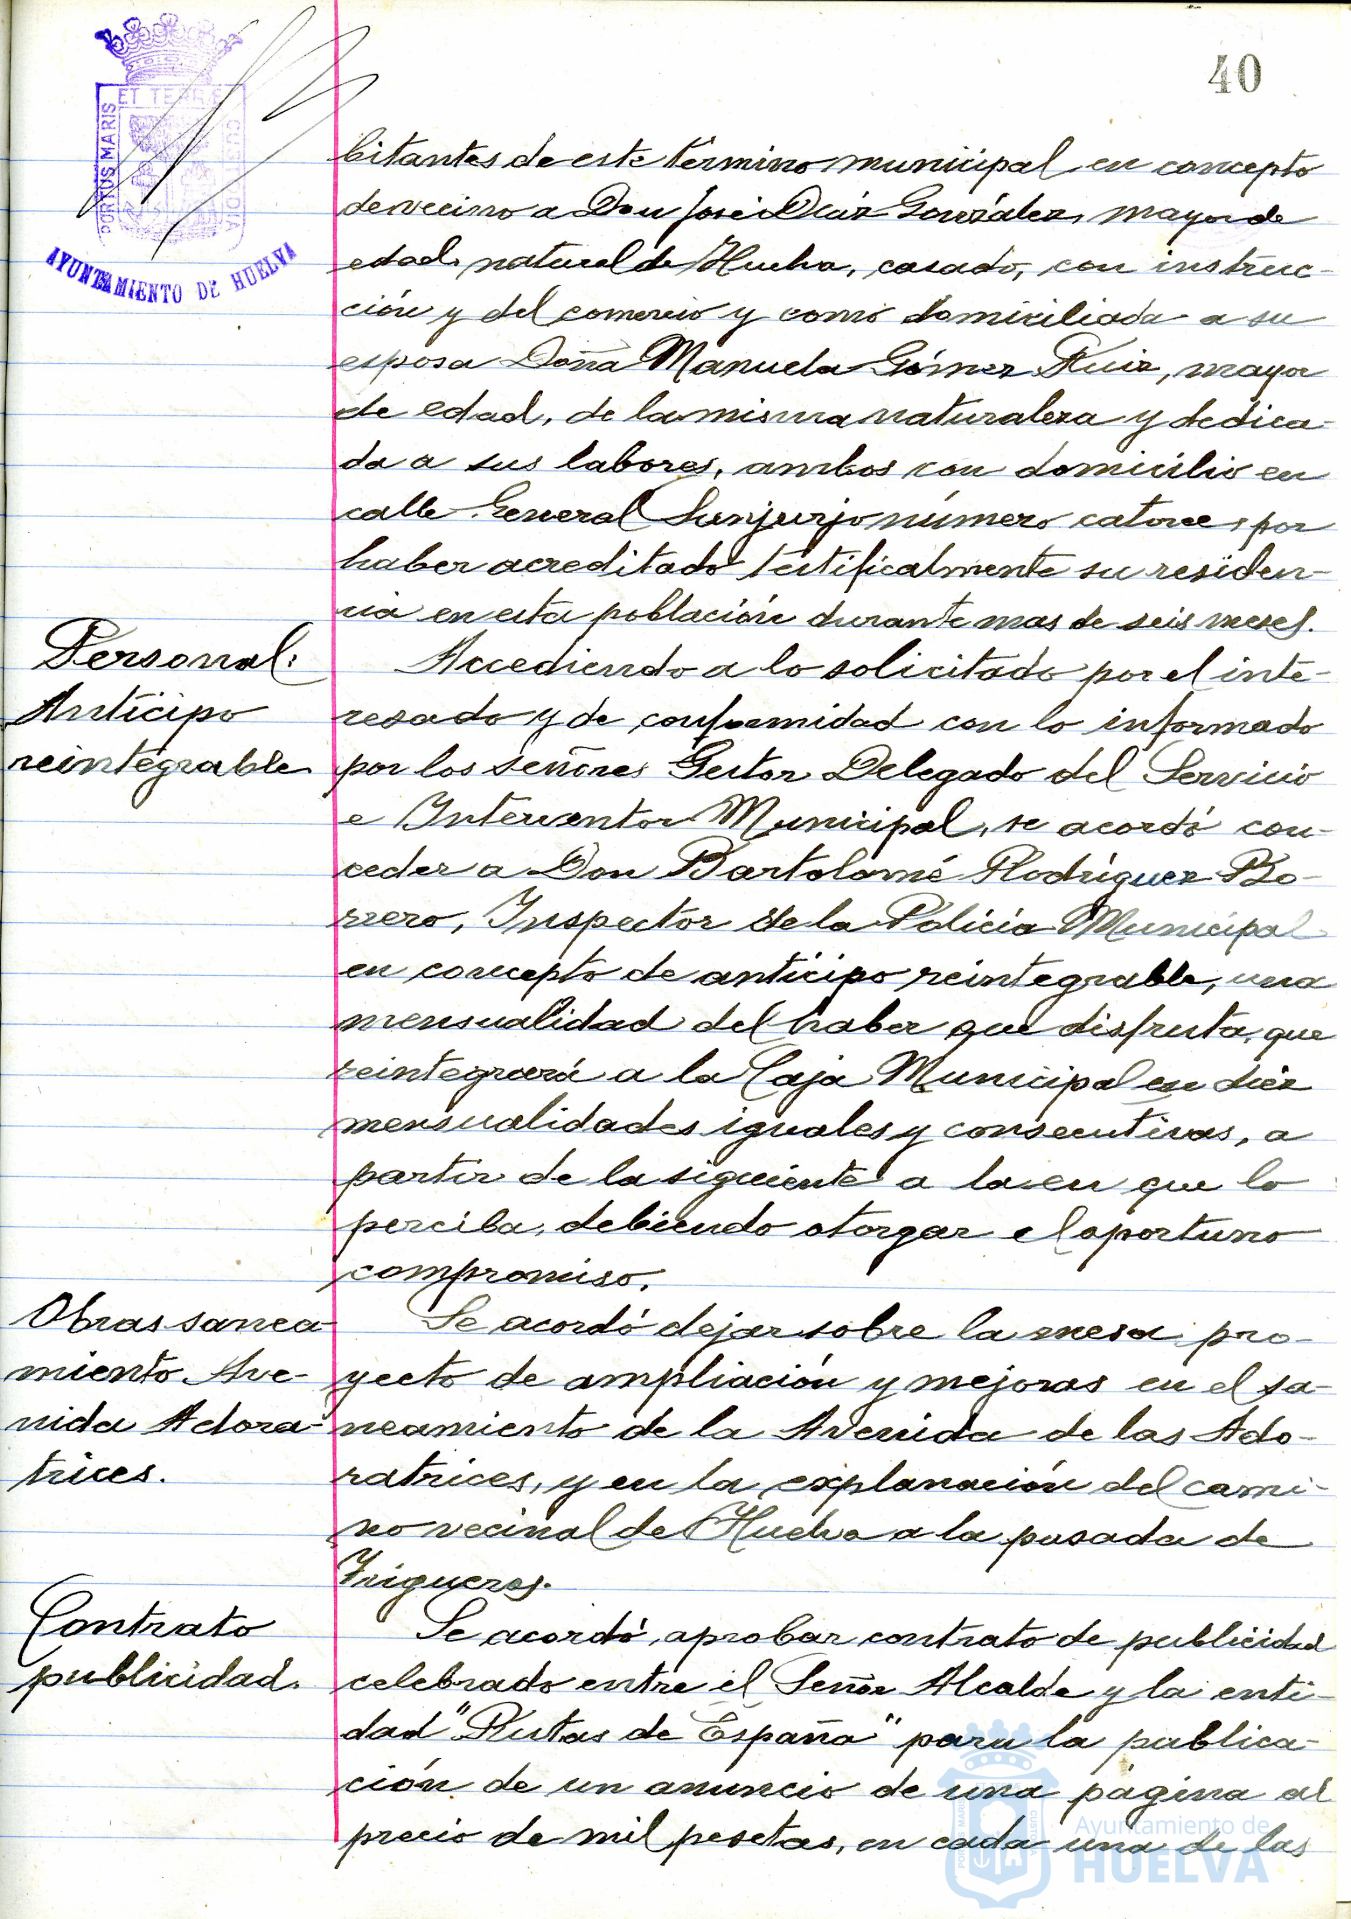 40
PORTUS MARIS ET TERRÆ CUSTODIA
AYUNTAMIENTO DE HUELVA
bitantes de este término municipal en concepto
de vecino a Don José Díaz González, mayor de
edad, natural de Huelva, casado, con instruc-
ción y del comercio y como domiciliada a su
esposa Doña Manuela Gómez Ruiz, mayor
de edad, de la misma naturaleza y dedica-
da a sus labores, ambos con domicilio en
calle General Sanjurjo número catorce, por
haber acreditado testificalmente su residen-
cia en esta población durante mas de seis meses.
Personal:
Anticipo
reintegrable
Accediendo a lo solicitado por el inte-
resado y de conformidad con lo informado
por los señores Gestor Delegado del Servicio
e Interventor Municipal, se acordó con-
ceder a Don Bartolomé Rodríguez Bo-
rrero, Inspector de la Policía Municipal
en concepto de anticipo reintegrable, una
mensualidad del haber que disfruta, que
reintegrará a la Caja Municipal en diez
mensualidades iguales y consecutivas, a
partir de la siguiente a la en que lo
perciba, debiendo otorgar el oportuno
compromiso.
Obras sanea-
miento Ave-
nida Adora-
trices.
Se acordó dejar sobre la mesa pro-
yecto de ampliación y mejoras en el sa-
neamiento de la Avenida de las Ado-
ratrices, y en la explanación del cami-
no vecinal de Huelva a la pasada de
Trigueros.
Contrato
publicidad.
Se acordó, aprobar contrato de publicidad
celebrado entre el Señor Alcalde y la enti-
dad "Rutas de España" para la publica-
ción de un anuncio de una página al
precio de mil pesetas, en cada una de las
Ayuntamiento de
HUELVA